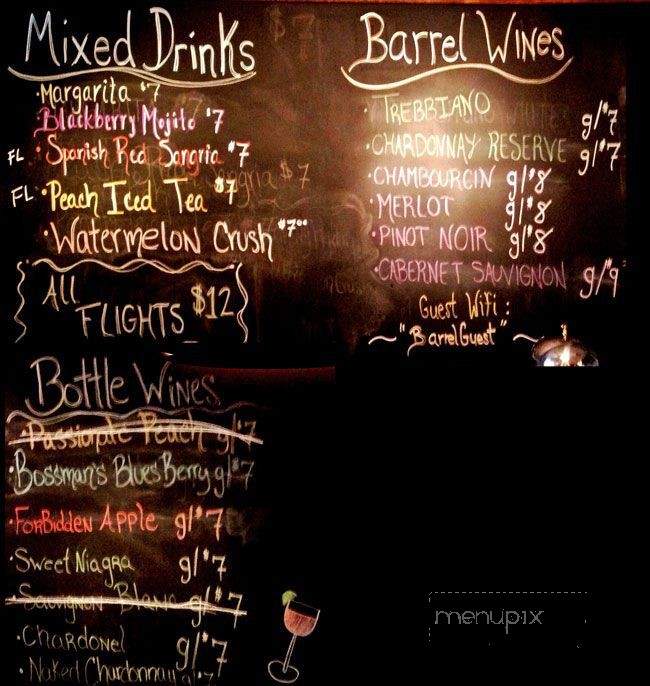 Mixed Drinks
·Margarita $7
Blackberry Mojito $7
FL ·Spanish Red Sangria $7
FL ·Peach Iced Tea $7
·Watermelon Crush $7⁰⁰
All
FLIGHTS $12
Barrel Wines
·TREBBIANO g/$7
·CHARDONNAY RESERVE g/$7
·CHAMBOURCIN g/$8
·MERLOT g/$8
·PINOT NOIR g/$8
·CABERNET SAUVIGNON g/$9
Guest Wifi:
~"BarrelGuest"~
Bottle Wines
·Passionate Peach g/$7
·Bossman's BluesBerry g/$7
·ForBidden Apple g/$7
·Sweet Niagra g/$7
·Sauvignon Blanc g/$7
·Chardonel g/$7
·Naked Chardonnay g/$7
menupix